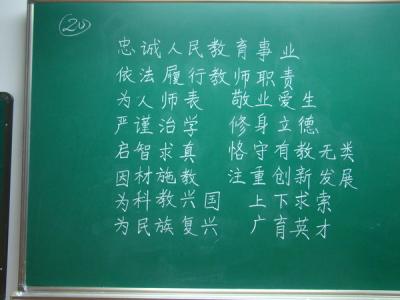 20
忠诚人民教育事业
依法履行教师职责
为人师表 敬业爱生
严谨治学 修身立德
启智求真 恪守有教无类
因材施教 注重创新发展
为科教兴国 上下求索
为民族复兴 广育英才